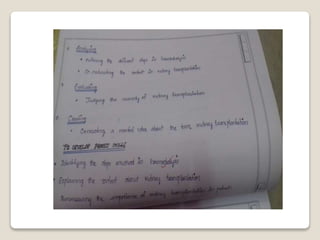 Analysing
• Analysing the different steps in haemodialysis
• In evaluating the content in kidney transplantation
Evaluating
• Judging the necessity of kidney transplantation
Creating
• Generating a mental idea about the term, kidney transplantation
TO DEVELOP PROCESS SKILLS
• Identifying the steps involved in haemodialysis
• Explaining the content about kidney transplantation
Summarising the importance of kidney transplantation in patient